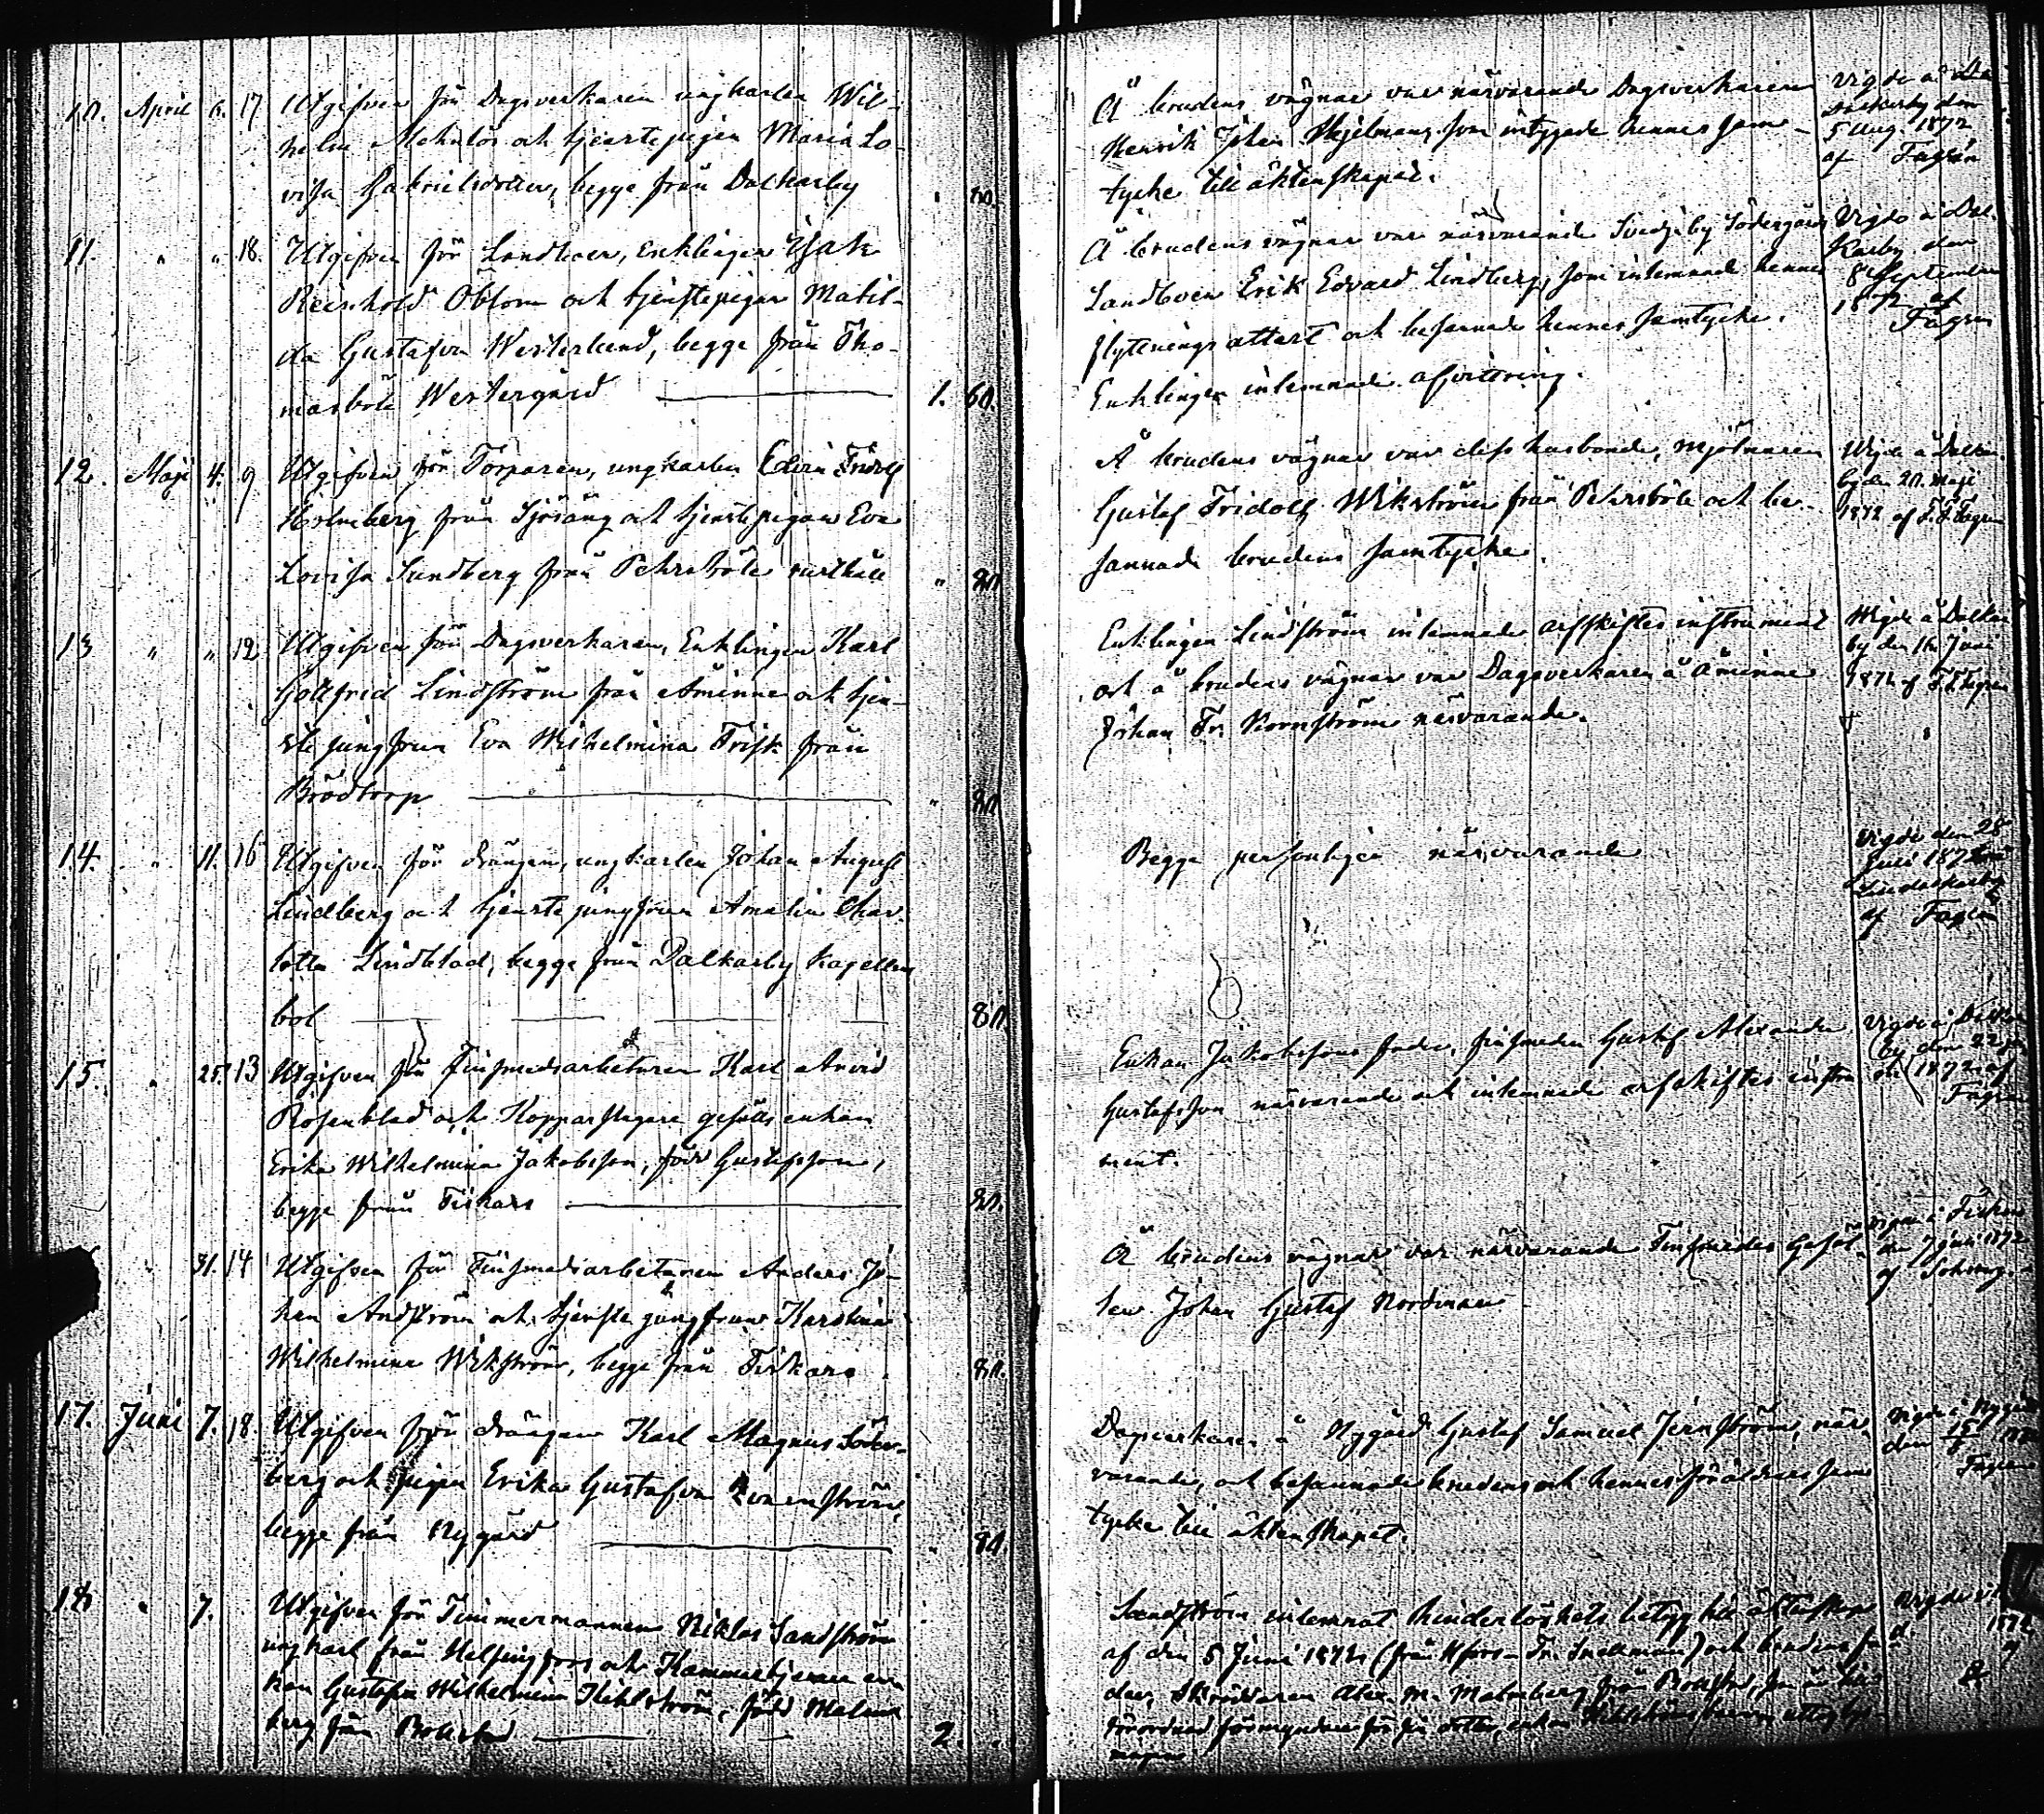 10. April 6. 17 Utgifven för Dagsverkaren ungkarlen Wil-
helm och tjenstepigan Maria Lo-
visa Gabrielsdotter, begge från Dalkarby " 80.
11. " " 18. Utgifven för Landboen, Enklingen Isak
Reinhold Öblom och tjenstepigan Matil-
da Gustafva Westerlund, begge från Tho-
masböle Westergård 1. 60.
12. Maji 4. 9 Utgifven för Torparen, ungkarlen Edvin Fridolf
Holmberg från Sjösäng och tjenstepigan Eva
Lovisa Sundberg från Pehrsböle rusthåll " 80
13 " " 12 Utgifven för Dagsverkaren, Enklingen Karl
Gottfrid Lindström från Åminne och tjen-
ste jungfrun Eva Wilhelmina Frisk från
Brödtorp " 80
14. " 11. 16 Utgifven för drängen, ungkarlen Johan August
Lindberg och tjenste jungfrun Amalia Char-
lotta Lindblad, begge från Dalkarby Kapellans
bol 80
15. " 25. 13 Utgifven för Finsmedsarbetaren Karl Arvid
Rosenblad och Kopparslagare gesälls enkan
Erika Wilhelmina Jakobsson, född Gustafsson,
begge från Fiskars 80.
31. 14 Utgifven för Finsmedsarbetaren Anders Jo-
han Andström och tjenste jungfrun Karolina
Wilhelmina Wikström, begge från Fiskars 80.
17. Juni 7. 18. Utgifven för drängen Karl Magnus Söder-
berg och pigan Erika Gustafva
begge från Nygård " 80
18 " 7. Utgifven för Timmermannen Niklas Sandström
ungkarl från Helsingfors och Kammartjenare en-
kan Gustafva Wilhelmina född Malm-
berg från 2. "
Å brudens vägnar var närvarande Dagsverkaren
Henrik Johan Hjelman, som intygade hennes sam-
tycke till äktenskapet.
Å brudens vägnar var närvarande Svedjeby Södergårds
Landboen Erik Edvard Lindberg, som inlemnade hennes
flyttningsattest och besannade hennes samtycke.
Enklingen inlemnade afvittring.
Å brudens vägnar var dess husbonde, mjölnaren
Gustaf Fridolf Wikström från Pehrsböle och be-
sannade brudens samtycke.
Enklingen Lindström inlemnade arfskiftes instrument
och å brudens vägnar var Dagsverkaren å Åminne
Johan Fr. Kornström närvarande.
Begge personligen närvarande
Enkan Jakobssons fader, finsmeden Gustaf Alexander
Gustafsson närvarande och inlemnade arfskiftes instru-
ment.
Å brudens vägnar var närvarande Finsmeds Gesäl-
len Johan Gustaf Nordman
Dagsverkaren å Nygård Gustaf Samuel Jernström, när-
varande, och besannade brudens och hennes föräldrars sam-
tycke till äktenskapet.
Sandström inlemnat hinderlöshets betyg till äktenskap
af den 5 Juni 1872 (från Hfors - Fr. Snellman) och brudens fa-
der, Skräddaren Alex. M. Malmberg från
förordnad förmyndare för sin dotter, enkan
Vigde å Dal-
karby den
5 Aug. 1872
af Fagrén
Vigde å Dal-
karby den
8 September
1872 af
Fagrén
Vigde å Dalkar-
by den 20. Maji
1872 af F. F. Fagrén
Vigde å Dalkar-
by den 16 Juni
1872 af F. F. Fagrén
Vigde den 28
Juli 1872
af Fagrén
Vigde å Dalkar-
by den 22
1872 af
Fagrén
Vigde å Fiskars
den 7 Juli 1872
af
Vigde å Nygård
den
Fagrén
Vigde
1872